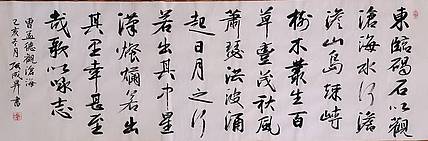 東臨碣石以觀
滄海水何澹
澹山島竦峙
樹木叢生百
草豐茂秋風
蕭瑟洪波涌
起日月之行
若出其中星
漢燦爛若出
其里幸甚至
哉歌以咏志
曹孟德觀滄海
亥 月 書